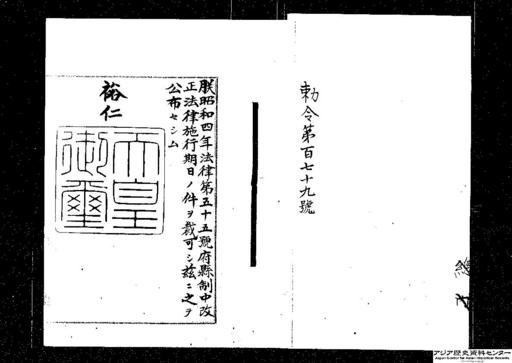 勅令第百七十九號
朕昭和四年法律第五十五號府縣制中改
正法律施行期日ノ件ヲ裁可シ茲ニ之ヲ
公布セシム
裕仁
天皇
御璽
アジア歴史資料センター
Japan Center for Asian Historical Records